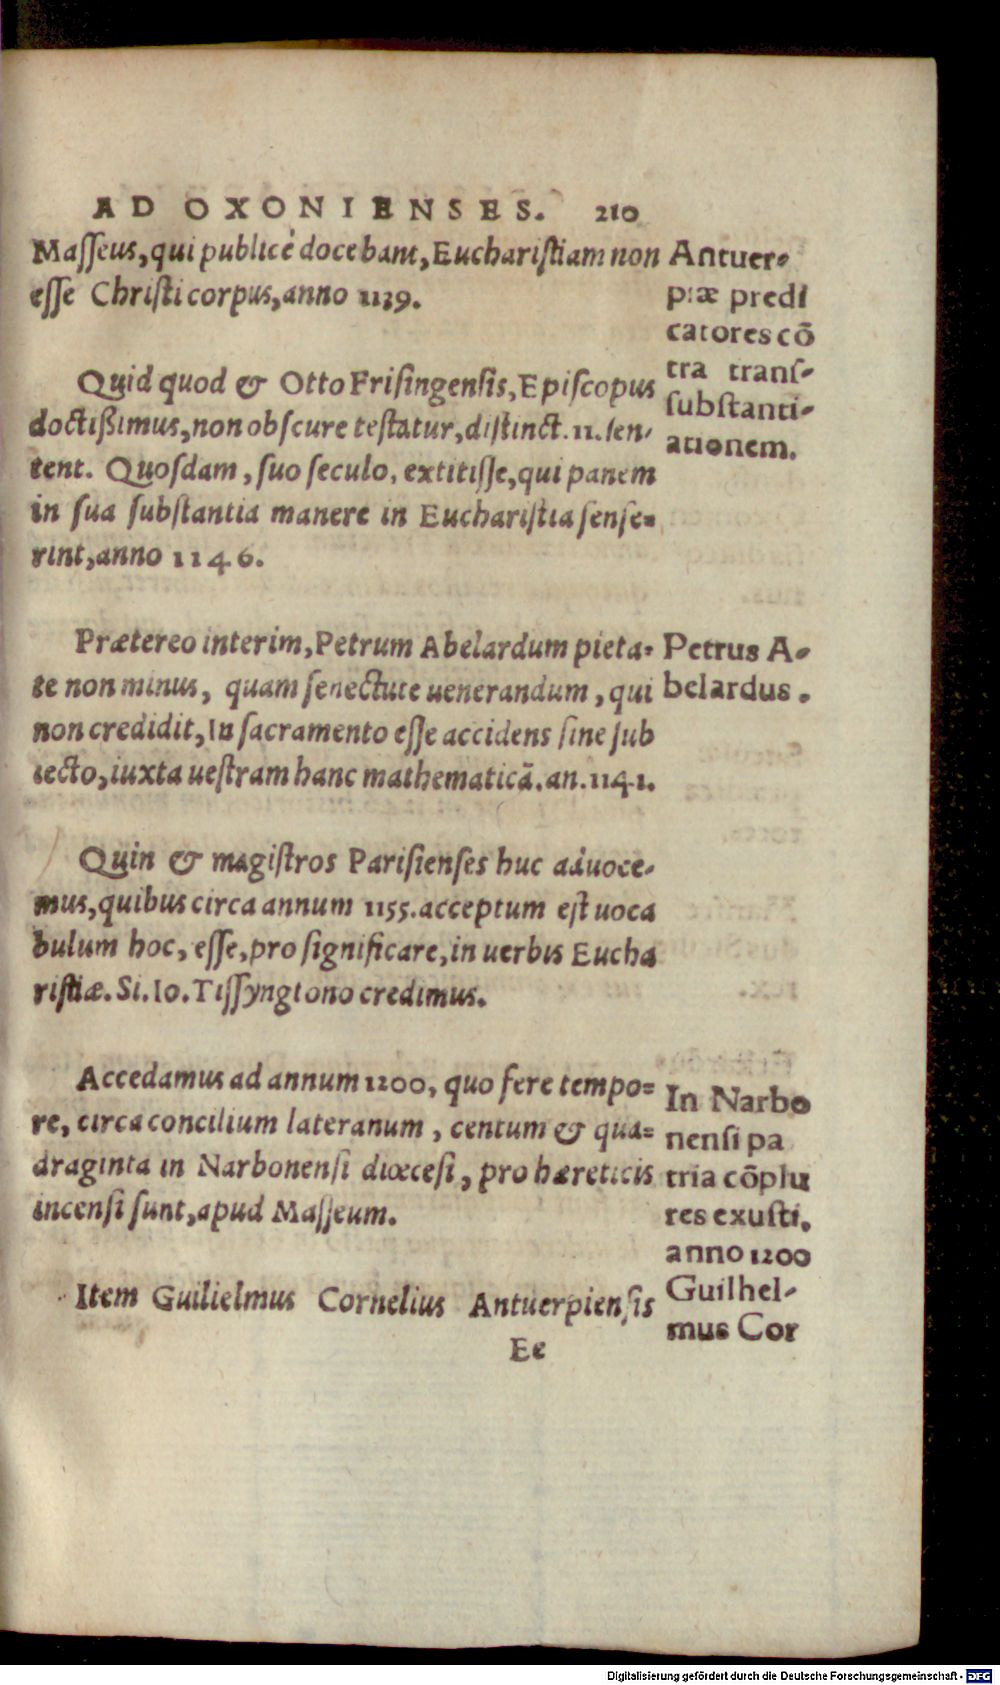 AD OXONIENSES. 210
Masseus, qui publicè docebant, Eucharistiam non
esse Christi corpus, anno 1139.
Antuer-
piæ predi
catores cõ
tra trans-
substanti-
ationem.
Quid quod & Otto Frisingensis, Episcopus
doctißimus, non obscure testatur, distinct. 11. sen-
tent. Quosdam, suo seculo, extitisse, qui panem
in sua substantia manere in Eucharistia sense-
rint, anno 1146.
Prætereo interim, Petrum Abelardum pieta-
te non minus, quam senectute uenerandum, qui
non credidit, In sacramento esse accidens sine sub
iecto, iuxta uestram hanc mathematicã. an. 1141.
Petrus A-
belardus.
Quin & magistros Parisienses huc aduoce-
mus, quibus circa annum 1155. acceptum est uoca
bulum hoc, esse, pro significare, in uerbis Eucha
ristiæ. Si. Io. Tissyngtono credimus.
Accedamus ad annum 1200, quo fere tempo-
re, circa concilium lateranum, centum & qua-
draginta in Narbonensi diœcesi, pro hæreticis
incensi sunt, apud Masseum.
In Narbo
nensi pa
tria cõplu
res exusti.
anno 1200
Item Guilielmus Cornelius Antuerpiensis
Guilhel-
mus Cor
Ee
Digitalisierung gefördert durch die Deutsche Forschungsgemeinschaft - DFG